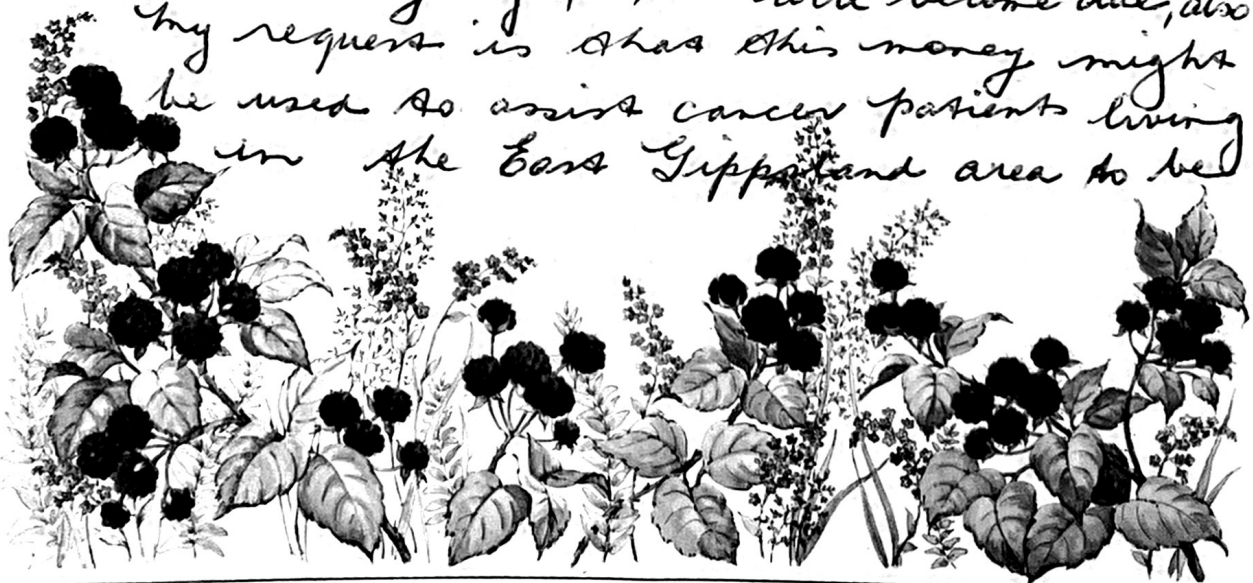 will become due, also
My request is that this money might
be used to assist cancer patients living
in the East Gippsland area to be